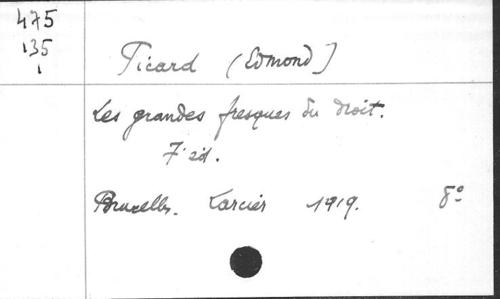 475
135
1
Picard (Edmond)
Les grandes fresques du droit.
7e éd.
Bruxelles. Larcier 1919. 8°